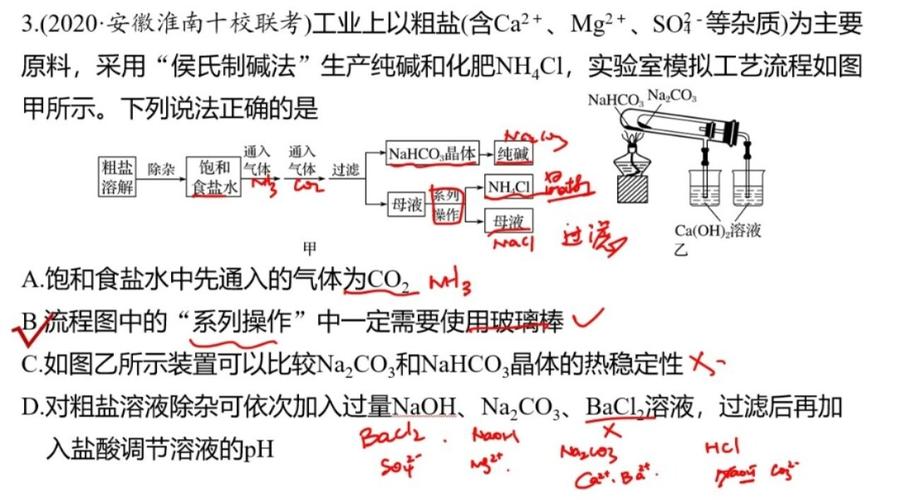 3.(2020·安徽淮南十校联考)工业上以粗盐(含Ca²⁺、Mg²⁺、SO₄²⁻等杂质)为主要
原料，采用“侯氏制碱法”生产纯碱和化肥NH₄Cl，实验室模拟工艺流程如图
甲所示。下列说法正确的是
NaHCO₃ Na₂CO₃
Na₂CO₃
粗盐溶解 除杂 饱和食盐水 通入气体 通入气体 过滤 NaHCO₃晶体 纯碱
NH₃ CO₂
母液 系列操作 NH₄Cl 晶体
母液
NaCl 过滤
甲
Ca(OH)₂溶液
乙
A.饱和食盐水中先通入的气体为CO₂ NH₃
B.流程图中的“系列操作”中一定需要使用玻璃棒
C.如图乙所示装置可以比较Na₂CO₃和NaHCO₃晶体的热稳定性
D.对粗盐溶液除杂可依次加入过量NaOH、Na₂CO₃、BaCl₂溶液，过滤后再加
入盐酸调节溶液的pH
BaCl₂ . NaOH Na₂CO₃ HCl
SO₄²⁻ Mg²⁺. Ca²⁺. Ba²⁺. NaOH CO₃²⁻